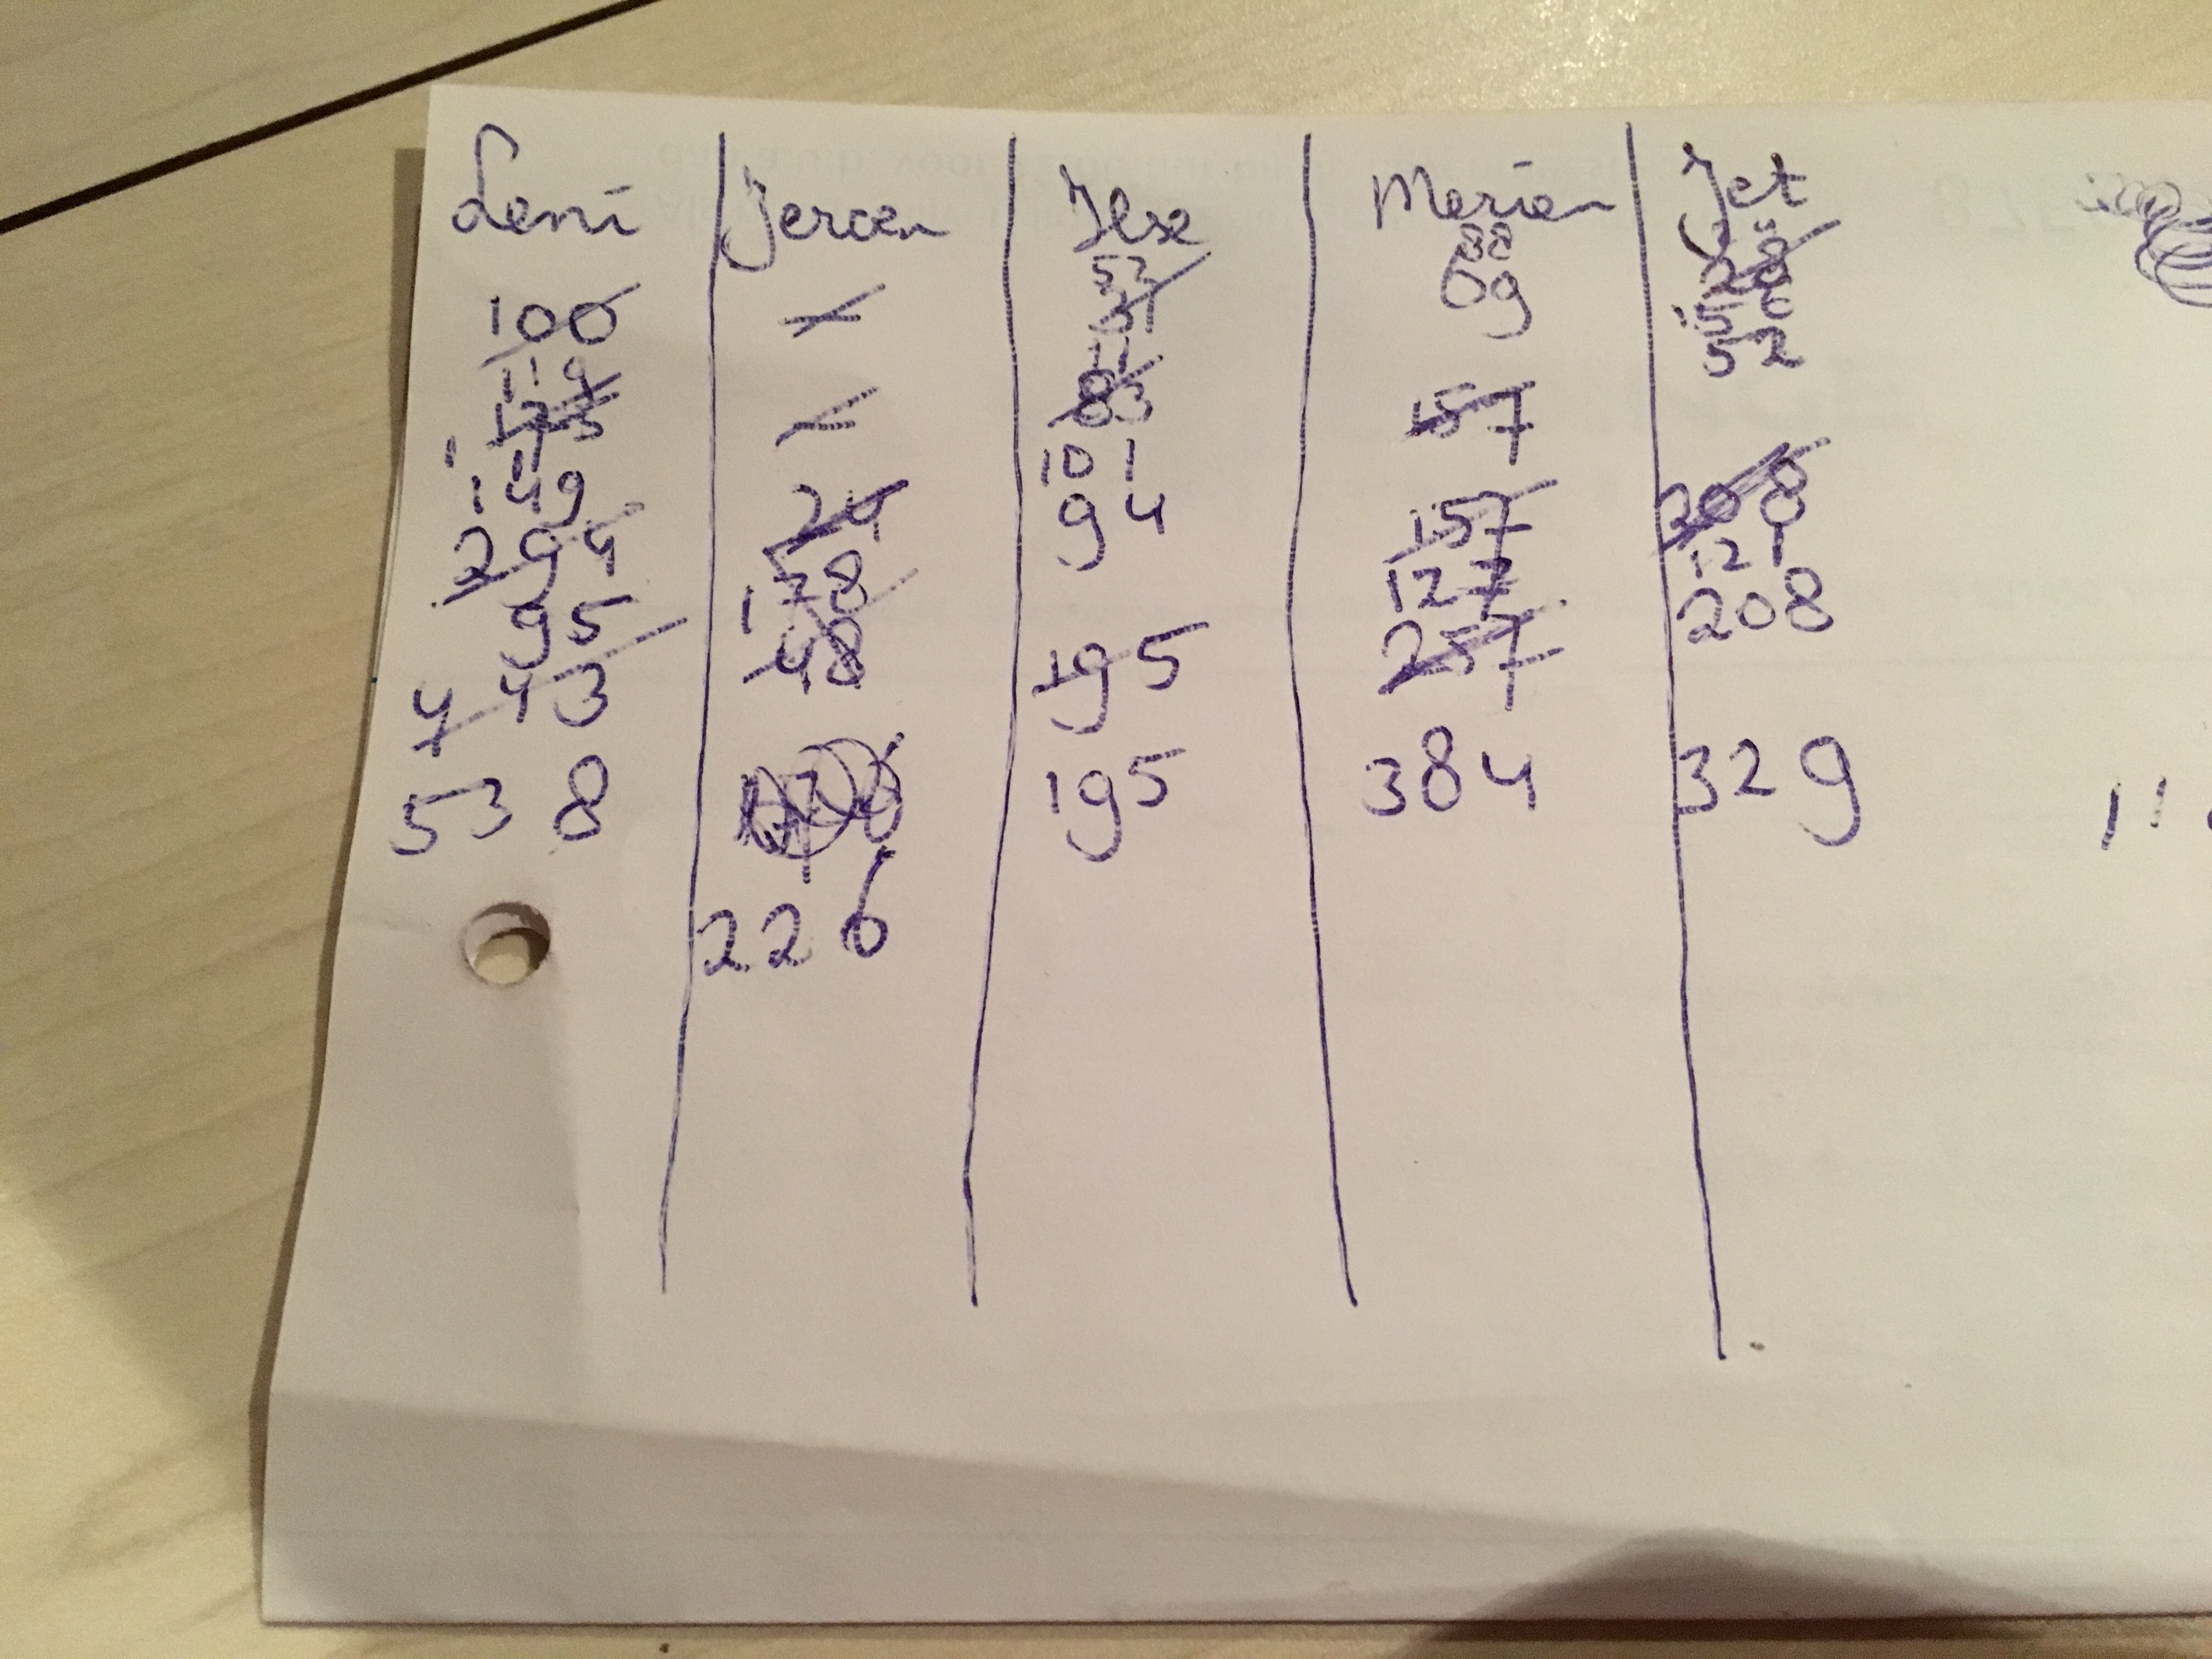 Leni Jeroen Ilse Merien Jet
88
52
100 31 69 28
156
52
119 11
123 83 157
149 101
24 94 157 308
294 121
95 178 127 208
443 48 195 257
538 195 384 329
226